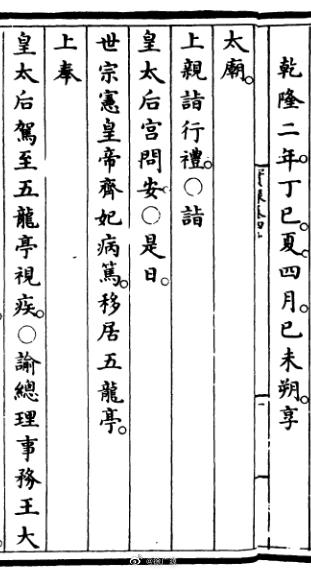 乾隆二年丁巳。夏四月。己未朔。享
太廟。
上親詣行禮。○詣
皇太后宮問安。○是日。
世宗憲皇帝齊妃病篤。移居五龍亭。
上奉
皇太后駕至五龍亭視疾。○諭總理事務王大